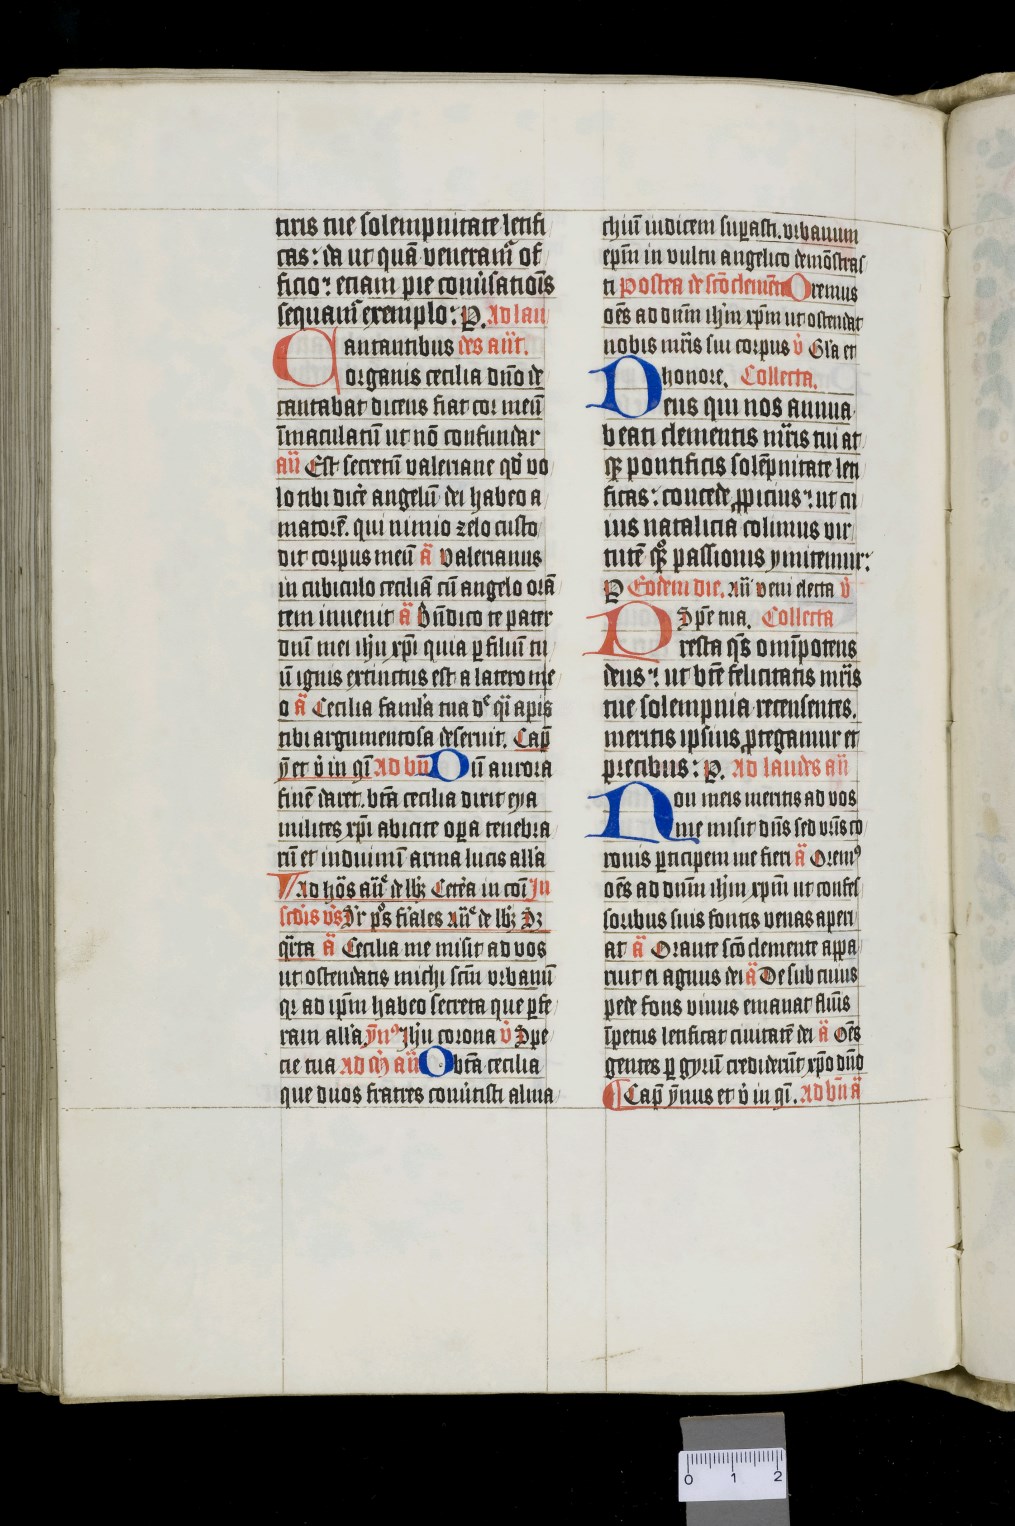 tiris tue solempnitate letifi
cas: da ut quā veneram᷒ of
ficio: etiam pie conũsatiōīs
sequam᷒ exemplo: P. Ad lau
Cantantibus des añt.
organis cecilia dn̄o de
cantabat dicens fiat cor meū
īmaculatū ut nō confundar
an̄ Est secretū valeriane qd̛ vo
lo tibi dicē angelū dei habeo a
matorē. qui nimio zelo custo
dit corpus meū ā Valerianus
in cubiculo ceciliā cū angelo orā
tem invenit ā Bn̄dico te pater
dnī mei ihu xpi quia p filiū tu
ū ignis extinctus est a latero me
o ā Cecilia famĺa tua dē qī apis
tibi argumentosa deseruit. Cap̄
ȳ et v̉ in qī Ad bn̄ Dū aurora
finē daret. btā cecilia dixit eya
milites xpi abicite opa tenebra
rū et induimī arma lucis alĺa
Ad hōs an̄e de lbʒ Cetēa in cōī In
scdis vṕs Dr ps fĩales An̄e de lbʒ Dz
qr̄ta ā Cecilia me misit ad vos
ut ostendatis michi scm̄ vrbanū
qr ad ip̄m habeo secreta que pfe
ram alĺa ȳn᷒ Ihu corona v̉ Spe
cie tua Ad m̄ an̄ O btā cecilia
que duos fratres conũtisti alma
chiū iudicem supasti. vrbanum
ep̄m in vultu angelico demōstras
ti Postea de scō clemēte Oremus
oēs ad dn̄m ihm xp̄m ut ostendat
nobis mr̄is sui corpus v̉ Gĺa et
honore. Collecta.
Deus qui nos annua
beati clementis mr̄is tui at
qꝫ pontificis solēpnitate leti
ficas: concede ꝓpicius: ut cu
ius natalicia colimus vir
tutē qꝫ passionis ymitemur:
P Eodem die. An̄ Veni electa v̉
Spē tua. Collecta
Presta qs̄ omīpotens
deus: ut btē felicitatis mr̄is
tue solempnia recensentes.
meritis ipsius ꝓtegamur et
precibus: P. Ad laudes an̄
Non meis meritis ad vos
me misit dn̄s sed vr̄is co
ronis pticipem me fieri ā Orem᷒
oēs ad dn̄m ihm xp̄m ut confes
soribus suis fontis venas aperi
at ā Orante scō clemente appa
ruit ei agnus dei ā De sub cuius
pede fons vivus emanat flūīs
īpetus letificat civitatē dei ā Oēs
gentes p gyrū crediderūt xpo dn̄o
Cap̄ ȳnus et v̉ in qī. Ad bn̄ ā